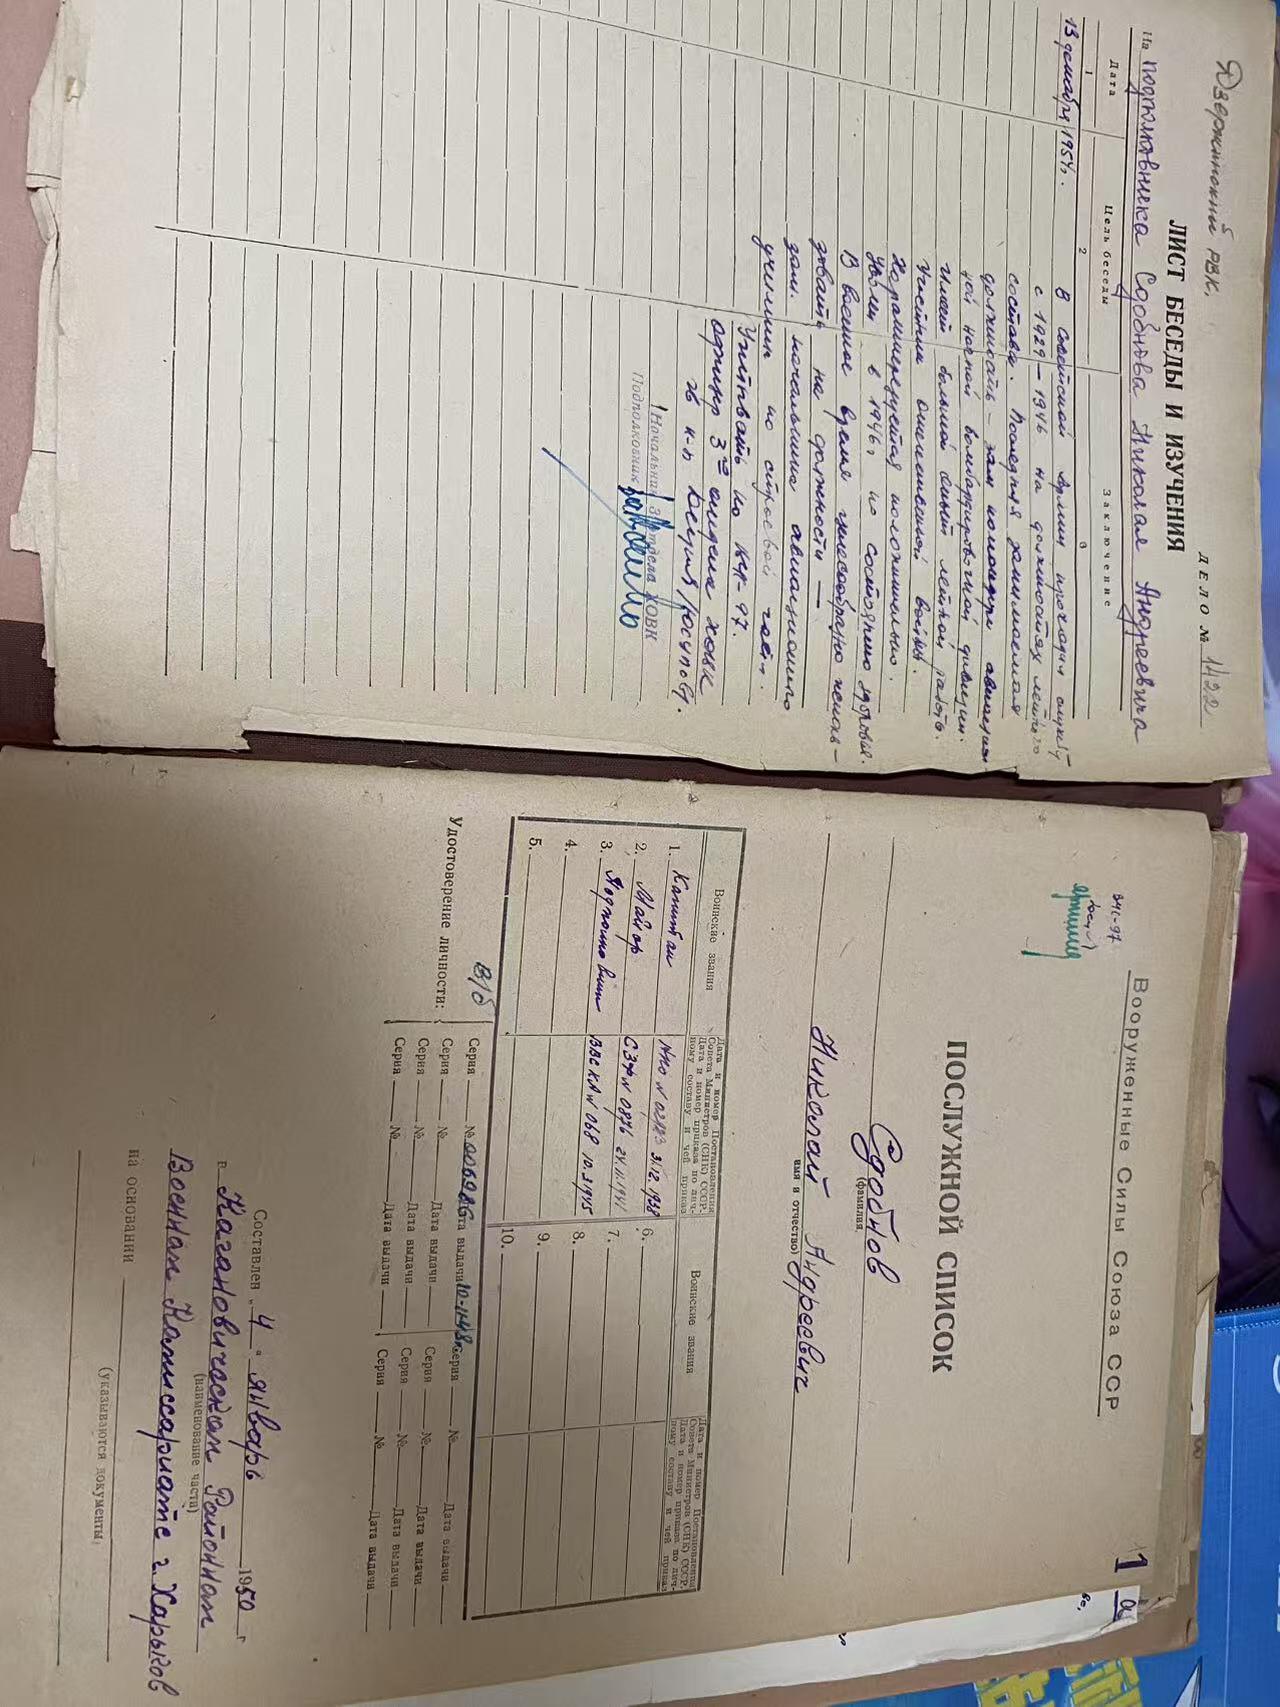 Дзержинский РВК.
ДЕЛО № 1422
ЛИСТ БЕСЕДЫ И ИЗУЧЕНИЯ
На подполковника Сдобнова Николая Андреевича
Дата
Цель беседы
Заключение
1
2
3
13 декабря 1954г.
В Советской Армии проходил службу
с 1929 – 1946 на должностях летного
состава. Последняя занимаемая
должность – зам командира авиацион
ной ночной бомбардировочной дивизии.
Имеет большой опыт летной работы.
Участник отечественной войны.
Характеризуется положительно.
Уволен в 1946г по состоянию здоровья.
В военное время целесообразно исполь-
зовать на должности —
зам. начальника авиационного
училища по строевой части.
Учитывать по ВУС-97.
Офицер 3го отдела ХОВК
к-н
Начальник 3 отдела ХОВК
Подполковник
ВУС-97
Вооруженные Силы Союза ССР
1
ПОСЛУЖНОЙ СПИСОК
Сдобнов
(фамилия,
Николай Андреевич
имя и отчество)
Воинские звания
Дата и номер Постановления
Совета Министров (СНК) СССР.
Дата и номер приказа по лич-
ному составу и чей приказ
Воинские звания
Дата и номер Постановления
Совета Министров (СНК) СССР.
Дата и номер приказа по лич-
ному составу и чей приказ
1. Капитан НКО № 31.12.1938
6.
2. Майор СЗФ № 0876 24.11.1941
7.
3. Подполковник ВВС КА № 068 10.3.1945
8.
4.
9.
5.
10.
в/б
Удостоверение личности:
Серия № Дата выдачи 10-1-48г. Серия № Дата выдачи
Серия № Дата выдачи Серия № Дата выдачи
Серия № Дата выдачи Серия № Дата выдачи
Серия № Дата выдачи Серия № Дата выдачи
Составлен „4“ январь 1950 г
в Кагановическом Районном
(наименование части)
Военном Комиссариате г. Харьков
на основании
(указываются документы,